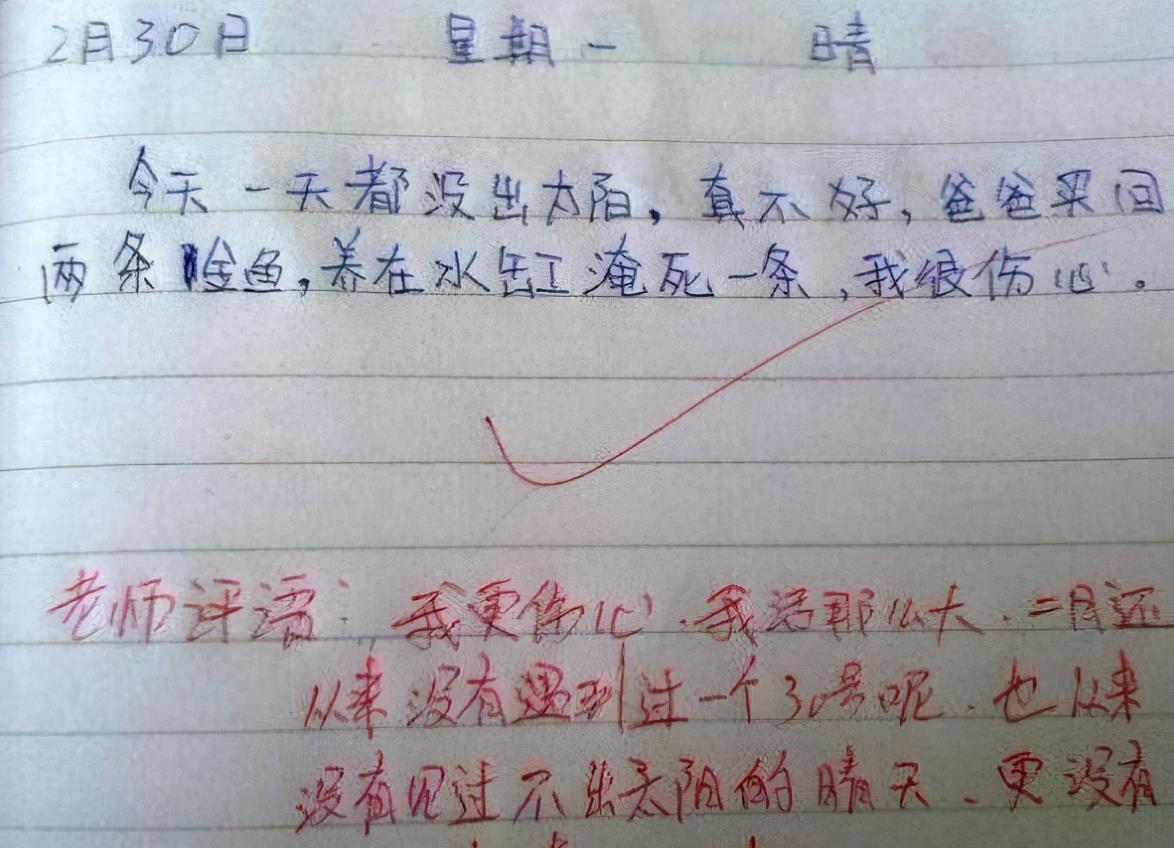 2月30日 星期一 晴
今天一天都没出太阳，真不好，爸爸买回
两条金鱼，养在水缸淹死一条，我很伤心。
老师评语：我更伤心．我活那么大．二月还
从来没有遇到过一个30号呢．也从来
没有见过不出太阳的晴天．更没有